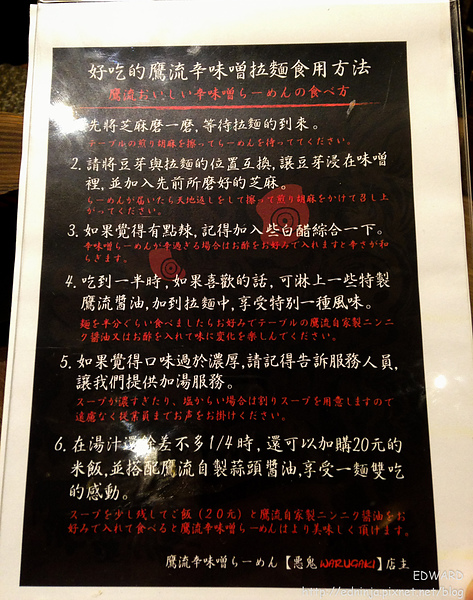 好吃的鷹流辛味噌拉麵食用方法
鷹流おいしい辛味噌らーめんの食べ方
先將芝麻磨一磨,等待拉麵的到來。
テーブルの煎り胡麻を擦ってらーめんを待っててください。
2. 請將豆芽與拉麵的位置互換,讓豆芽浸在味噌
裡,並加入先前所磨好的芝麻。
らーめんが届いたら天地返しをして擦って煎り胡麻をかけて召し上
がってください。
3. 如果覺得有點辣,記得加入些白醋綜合一下。
辛味噌らーめんが辛過ぎる場合はお酢をお好みで入れますと辛さが和
らぎます。
4. 吃到一半時,如果喜歡的話,可淋上一些特製
鷹流醬油,加到拉麵中,享受特別一種風味。
麺を半分ぐらい食べましたらお好みでテーブルの鷹流自家製ニンニ
ク醤油又はお酢を入れて味に変化を楽しんでください。
5. 如果覺得口味過於濃厚,請記得告訴服務人員,
讓我們提供加湯服務。
スープが濃すぎたり、塩がらい場合は割りスープを用意しますので
遠慮なく従業員までお声をお掛けください。
6. 在湯汁還餘差不多1/4時,還可以加購20元的
米飯,並搭配鷹流自製蒜頭醬油,享受一麵雙吃
的感動。
スープを少し残してご飯(20元)と鷹流自家製ニンニク醤油をお
好みで入れて食べると鷹流辛味噌らーめんはより美味しく頂けます。
鷹流辛味噌らーめん【悪鬼WARUGAKI】店主
EDWARD
http://edninja.pixnet.net/blog